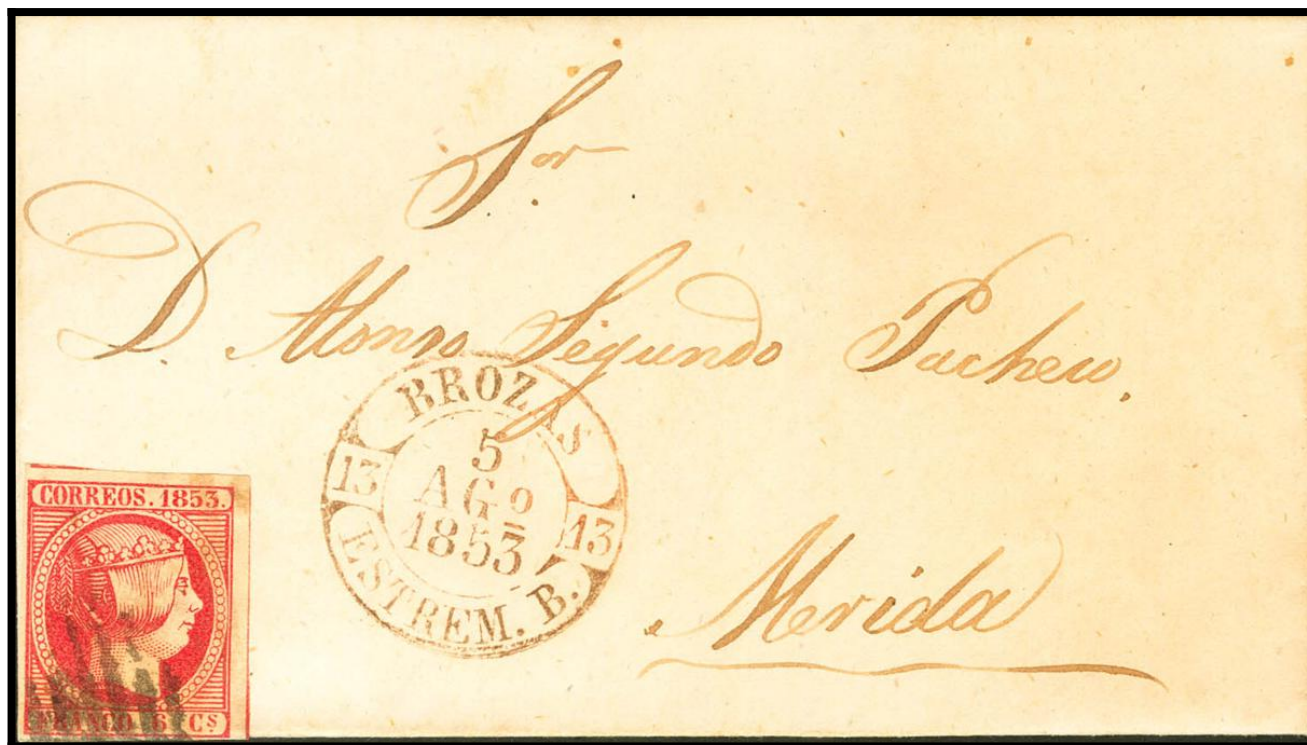 Sor
D. Alonso Segundo Pacheco,
BROZAS
13
5
AGo
1853
13
ESTREM. B.
Merida
CORREOS. 1853.
FRANCO 6 Cs